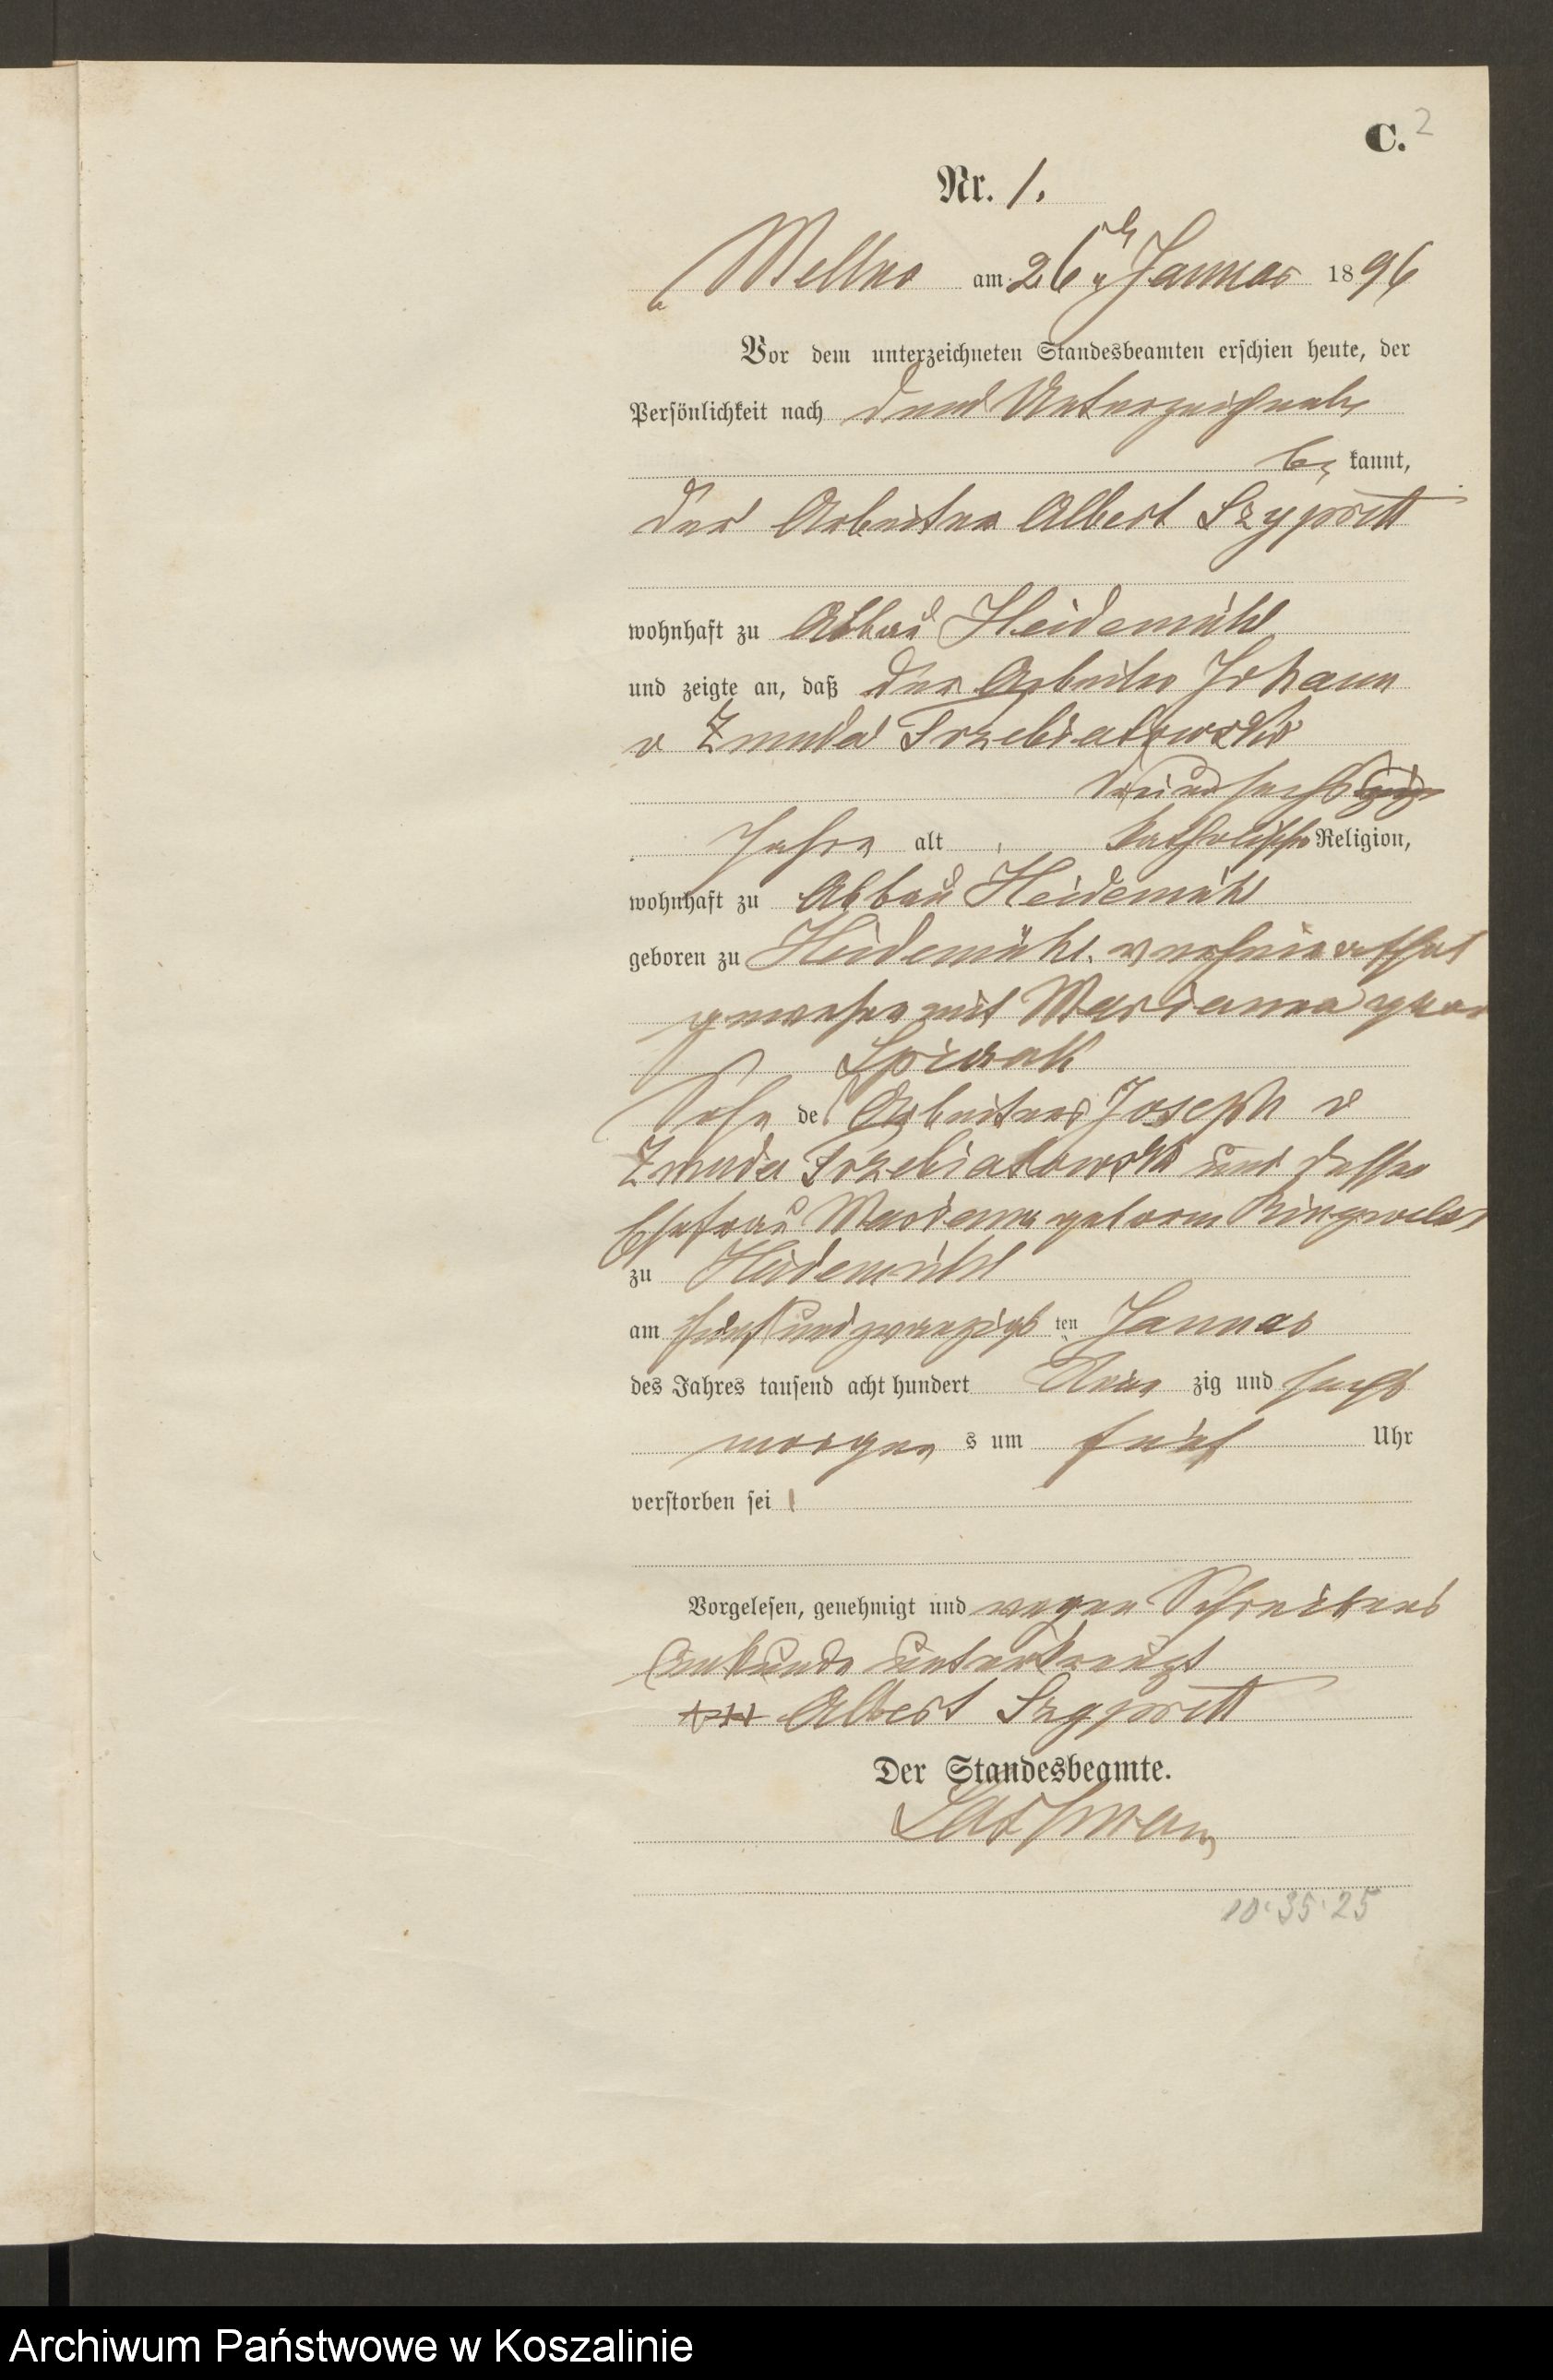 C. 2
Nr. 1.
Mellno am 26ten Januar 1896
Vor dem unterzeichneten Standesbeamten erschien heute, der
Persönlichkeit nach dem Unterzeichneten
be kannt,
der Arbeiter Albert Szyprett
wohnhaft zu Abbau Heidemühl
und zeigte an, daß der Arbeiter Johann
v Zmuda Trzebiatowski
sechszig
Jahre alt, katholischer Religion,
wohnhaft zu Abbau Heidemühl
geboren zu Heidemühl, verheirathet
gewesen mit Marianna gebor
Sohn des Arbeiters Joseph v
Zmuda Trzebiatowski und dessen
Ehefrau Marianna geboren
zu Heidemühl
am fünfundzwanzigs ten Januar
des Jahres tausend acht hundert Neun zig und sechs
morgen s um fünf Uhr
verstorben sei
Vorgelesen, genehmigt und wegen Schreibens
unkunde unterkreuzt
+++ Albert Szyprett
Der Standesbeamte.
10.35.25
Archiwum Państwowe w Koszalinie